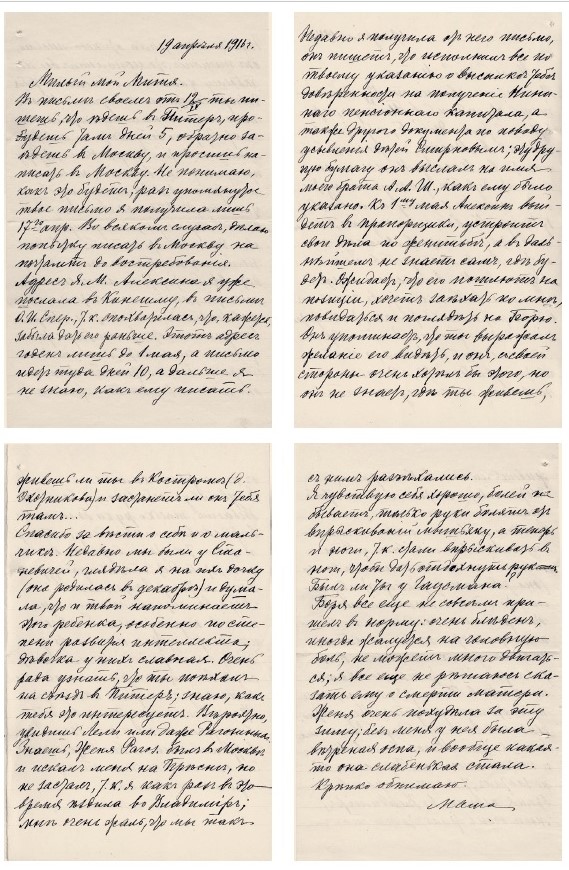 19 апрѣля 1916 г.
Милый мой Митя.
Въ письмѣ своемъ отъ 12/IV ты пи-
шешь, что ѣдешь въ Питеръ, про-
будешь тамъ дней 5, обратно за-
ѣдешь въ Москву, и просишь на-
писать въ Москву. Не понимаю,
какъ это будетъ; разъ упомянутое
твое письмо я получила лишь
17го апр. Во всякомъ случаѣ, дѣлаю
попытку писать въ Москву на
почтамтъ до востребованія.
Адресъ Я. М. Алексина я уже
послала въ Кинешму, въ письмѣ
т. к. спохватилась, что, кажется,
забыла дать его раньше. Этотъ адресъ
годенъ лишь до 1 мая, а письмо
идетъ туда дней 10, а дальше я
не знаю, какъ ему писать.
Недавно я получила отъ него письмо,
онъ пишетъ, что исполнилъ все по
твоему указанію о высылкѣ тебѣ
довѣренности на полученіе Нини-
наго пенсіоннаго капитала, а
также другого документа по поводу
усыновленія дѣтей Смирновымъ; эту дру-
гую бумагу онъ выслалъ на имя
моего брата А. М. Ш., какъ ему было
указано. Къ 1му мая Алексинъ вый-
детъ въ прапорщики, устроитъ
свои дѣла по женитьбѣ, а въ даль-
нѣйшемъ не знаетъ самъ, гдѣ бу-
детъ. Ожидаетъ, что его пошлютъ на
позиціи, хочетъ заѣхать ко мнѣ,
повидаться и поглядѣть на Борю.
Онъ упоминаетъ, что ты выражалъ
желаніе его видѣть, и онъ, съ своей
стороны очень хотѣлъ бы этого, но
онъ не знаетъ, гдѣ ты живешь,
живешь ли ты въ Костромѣ (д.
Охотникова) и застанетъ ли онъ тебя
тамъ...
Спасибо за вѣсти о себѣ и о маль-
чикѣ. Недавно мы были у
глядѣла я на ихъ дочку
(она родилась въ декабрѣ) и дума-
ла, что и твой напоминаетъ
этого ребенка, особенно по сте-
пени развитія интеллекта;
дѣвочка у нихъ славная. Очень
рада узнать, что ты поѣхалъ
на съѣздъ въ Питеръ; знаю, какъ
тебя это интересуетъ. Вѣроятно,
увидишь Лелю или даже
Знаешь, Женя Рагоз. былъ въ Москвѣ
и искалъ меня на Прѣснѣ, но
не засталъ, т. к. я какъ разъ въ это
время ѣздила во Владиміръ;
мнѣ очень жаль, что мы такъ
съ нимъ разъѣхались.
Я чувствую себя хорошо, болей не
бываетъ, только руки болятъ отъ
впрыскиваній мышьяку, а теперь
и ноги, т. к. стали впрыскивать въ
ноги, чтобы дать отдохнуть рукамъ.
Былъ ли ты у Гаусмана?
Боря все еще не совсѣмъ при-
шелъ въ норму: очень блѣденъ,
иногда жалуется на головную
боль, не можетъ много двигать-
ся; я все еще не рѣшаюсь ска-
зать ему о смерти матери.
Женя очень похудѣла за эту
зиму; безъ меня у нея была
вѣтреная оспа, и вообще какая-
то она слабенькая стала.
Крѣпко обнимаю.
Маша